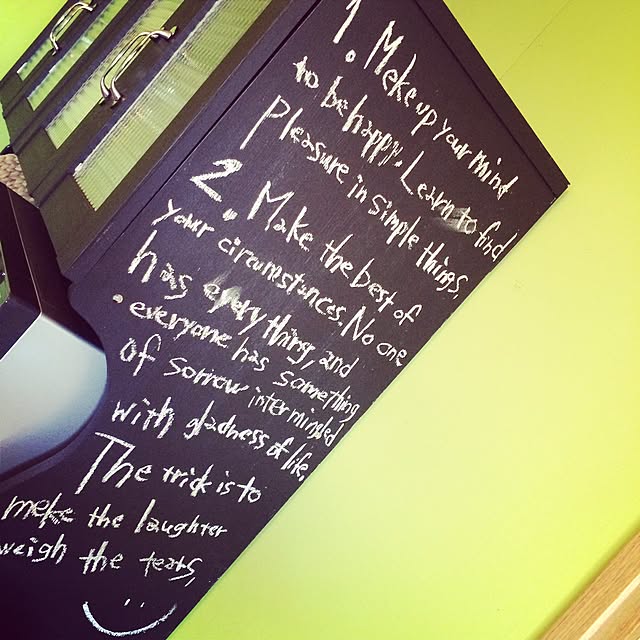 1. Make up your mind
to be happy. Learn to find
pleasure in simple things,
2. Make the best of
your circumstances. No one
has everything, and
everyone has something
of sorrow interminded
with gladness of life,
The trick is to
make the laughter
weigh the tears,